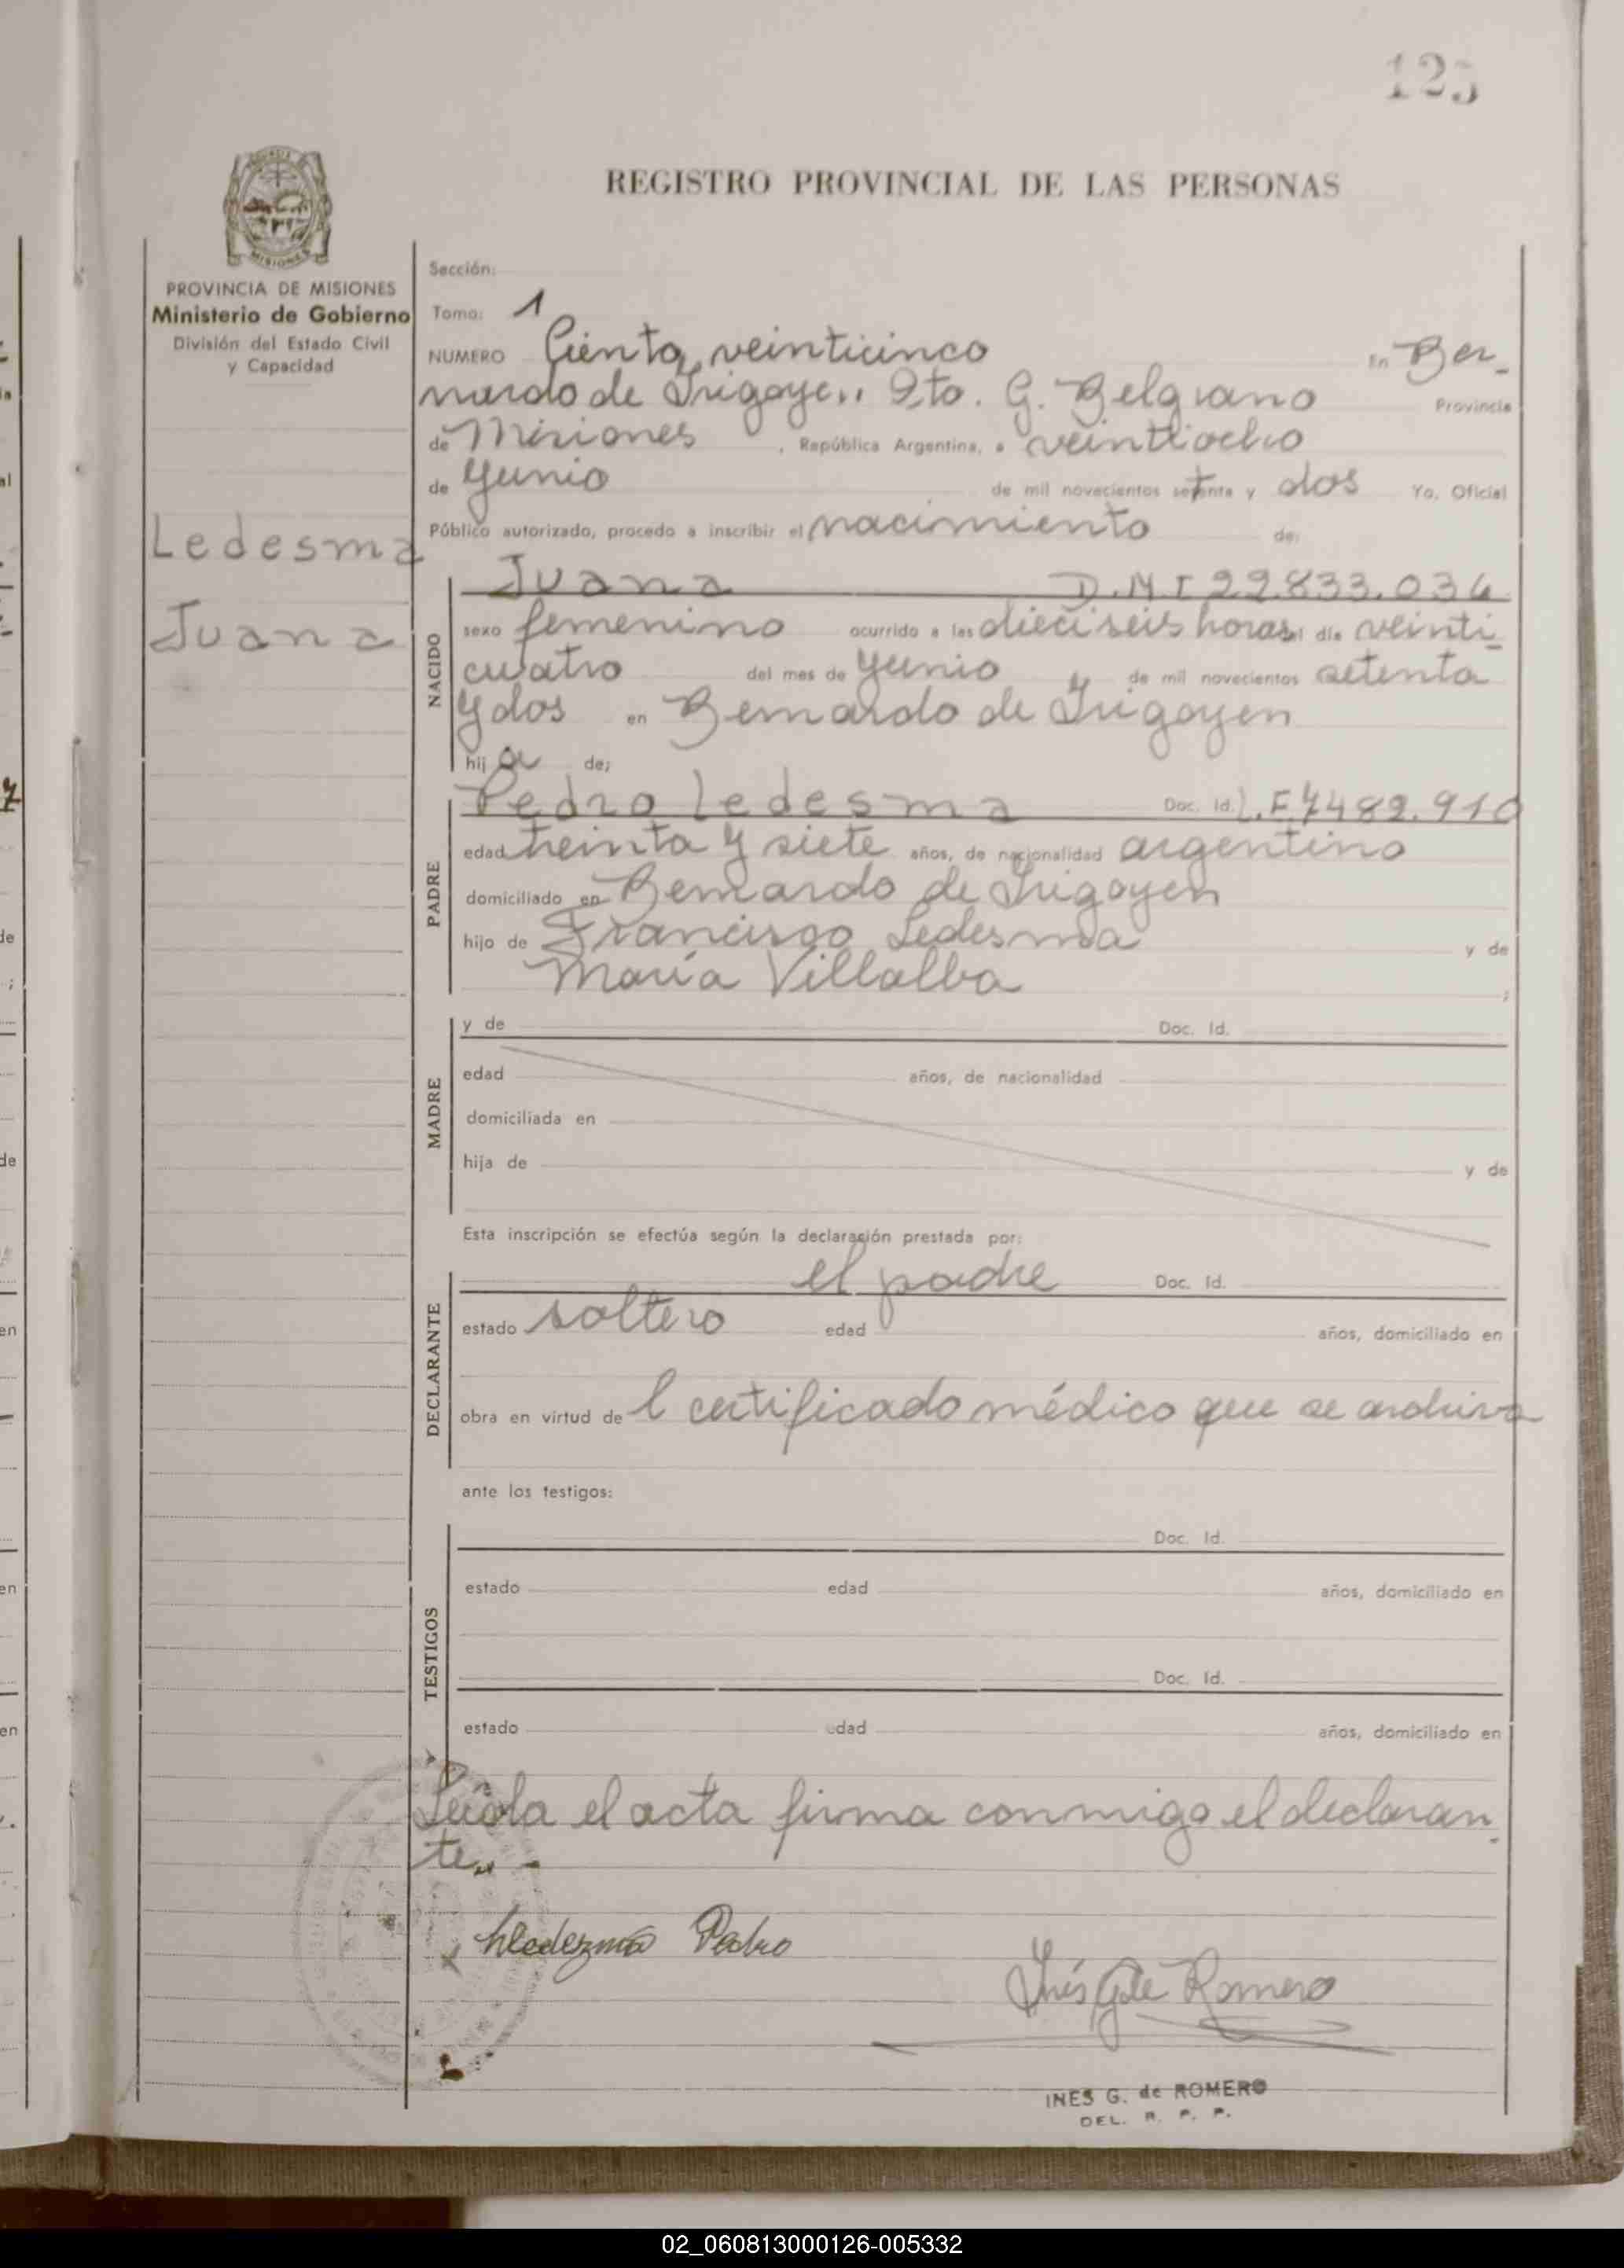 125
REGISTRO PROVINCIAL DE LAS PERSONAS
MISIONES
PROVINCIA DE MISIONES
Ministerio de Gobierno
División del Estado Civil
y Capacidad
Ledesma
Juana
Sección:
Tomo: 1
NUMERO Ciento veinticinco En Ber-
nardo de Irigoyen Dto. G. Belgrano Provincia
de Misiones , República Argentina, a veintiocho
de Yunio de mil novecientos setenta y dos Yo, Oficial
Público autorizado, procedo a inscribir el nacimiento de:
NACIDO
Juana D.N.I 22.833.036
sexo femenino ocurrido a las dieciseis horas día veinti-
cuatro del mes de Yunio de mil novecientos setenta
y dos en Bernardo de Irigoyen
hij a de;
PADRE
Pedro Ledesma Doc. Id. L.E 7482.910
edad treinta y siete años, de nacionalidad argentino
domiciliado en Bernardo de Irigoyen
hijo de Francisco Ledesma y de
María Villalba ;
MADRE
y de Doc. Id.
edad años, de nacionalidad
domiciliada en
hija de y de
Esta inscripción se efectúa según la declaración prestada por:
DECLARANTE
el padre Doc. Id.
estado soltero edad años, domiciliado en
obra en virtud de l certificado médico que se archiva
ante los testigos:
TESTIGOS
Doc. Id.
estado edad años, domiciliado en
Doc. Id.
estado edad años, domiciliado en
Leída el acta firma conmigo el declaran-
te.. -
x Lledezma Pedro
Inés G de Romero
INES G. de ROMERO
DEL. R. P. P.
02_060813000126-005332